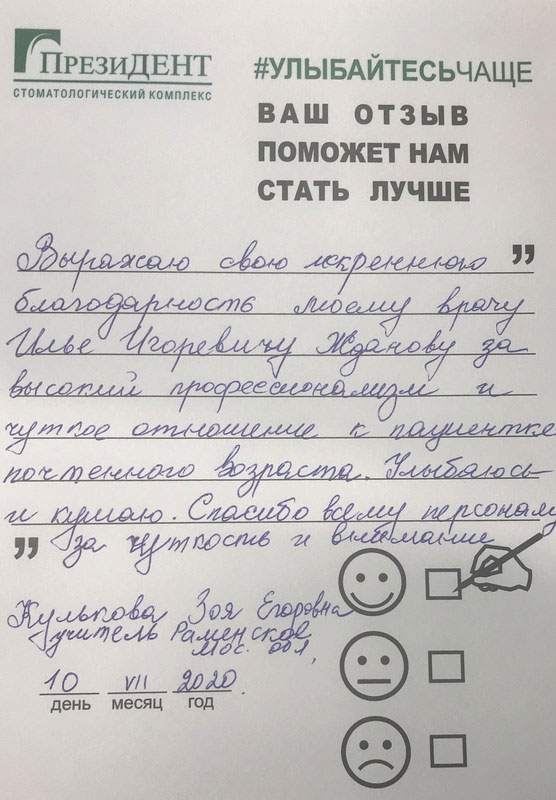 ПРЕЗИДЕНТ
СТОМАТОЛОГИЧЕСКИЙ КОМПЛЕКС
#УЛЫБАЙТЕСЬЧАЩЕ
ВАШ ОТЗЫВ
ПОМОЖЕТ НАМ
СТАТЬ ЛУЧШЕ
Выражаю свою искреннюю "
благодарность моему врачу
Илье Игоревичу Жданову за
высокий профессионализм и
чуткое отношение к пациентке
почтенного возраста. Улыбаюсь
и кушаю. Спасибо всему персоналу
" за чуткость и внимание
Кулькова Зоя Егоровна
учитель Раменское
Мос. обл,
10 VII 2020.
день месяц год